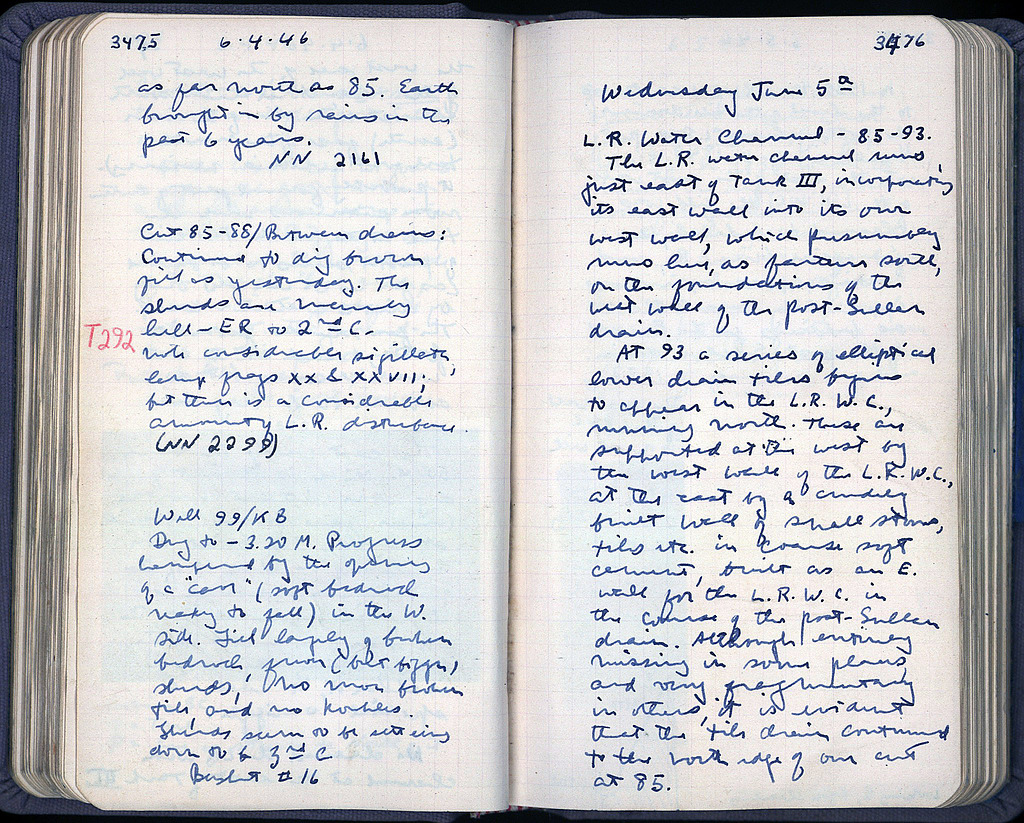 3475 6·4·46
as far north as 85. Earth
brought in by rains in the
past 6 years.
NN 2161
Cut 85-88/Between drains:
Continued to dig brown
fill as yesterday. The
sherds are mainly
hell-ER to 2nd C.
T292
note considerable sigillata,
lamp frags XX & XXVII;
but there is a considerable
amount L.R. disturbance.
(NN 2299)
Well 99/KB
Dug to -3.20 M. Progress
hampered by the opening
of a "cave" (soft bedrock
ready to fall) in the W.
side. Fill largely of broken
bedrock, fewer (but bigger)
sherds, no more broken
tile, and no
Sherds seem to be settling
down to 3rd C
Basket #16
3476
Wednesday June 5th
L.R. Water Channel - 85-93.
The L.R. water channel runs
just east of Tank III, incorporating
its east wall into its own
west wall, which presumably
runs here, as farther south,
on the foundations of the
west wall of the post-Sullan
drain.
At 93 a series of elliptical
lower drain tiles begins
to appear in the L.R.W.C.,
running north. These are
supported at the west by
the west wall of the L.R.W.C.,
at the east by a crudely
built wall of small stones,
tiles etc. in coarse soft
cement, built as an E.
wall for the L.R.W.C. in
the course of the post-Sullan
drain. Although entirely
missing in some places
and very fragmentary
in others, it is evident
that the tile drain continued
to the north edge of our cut
at 85.